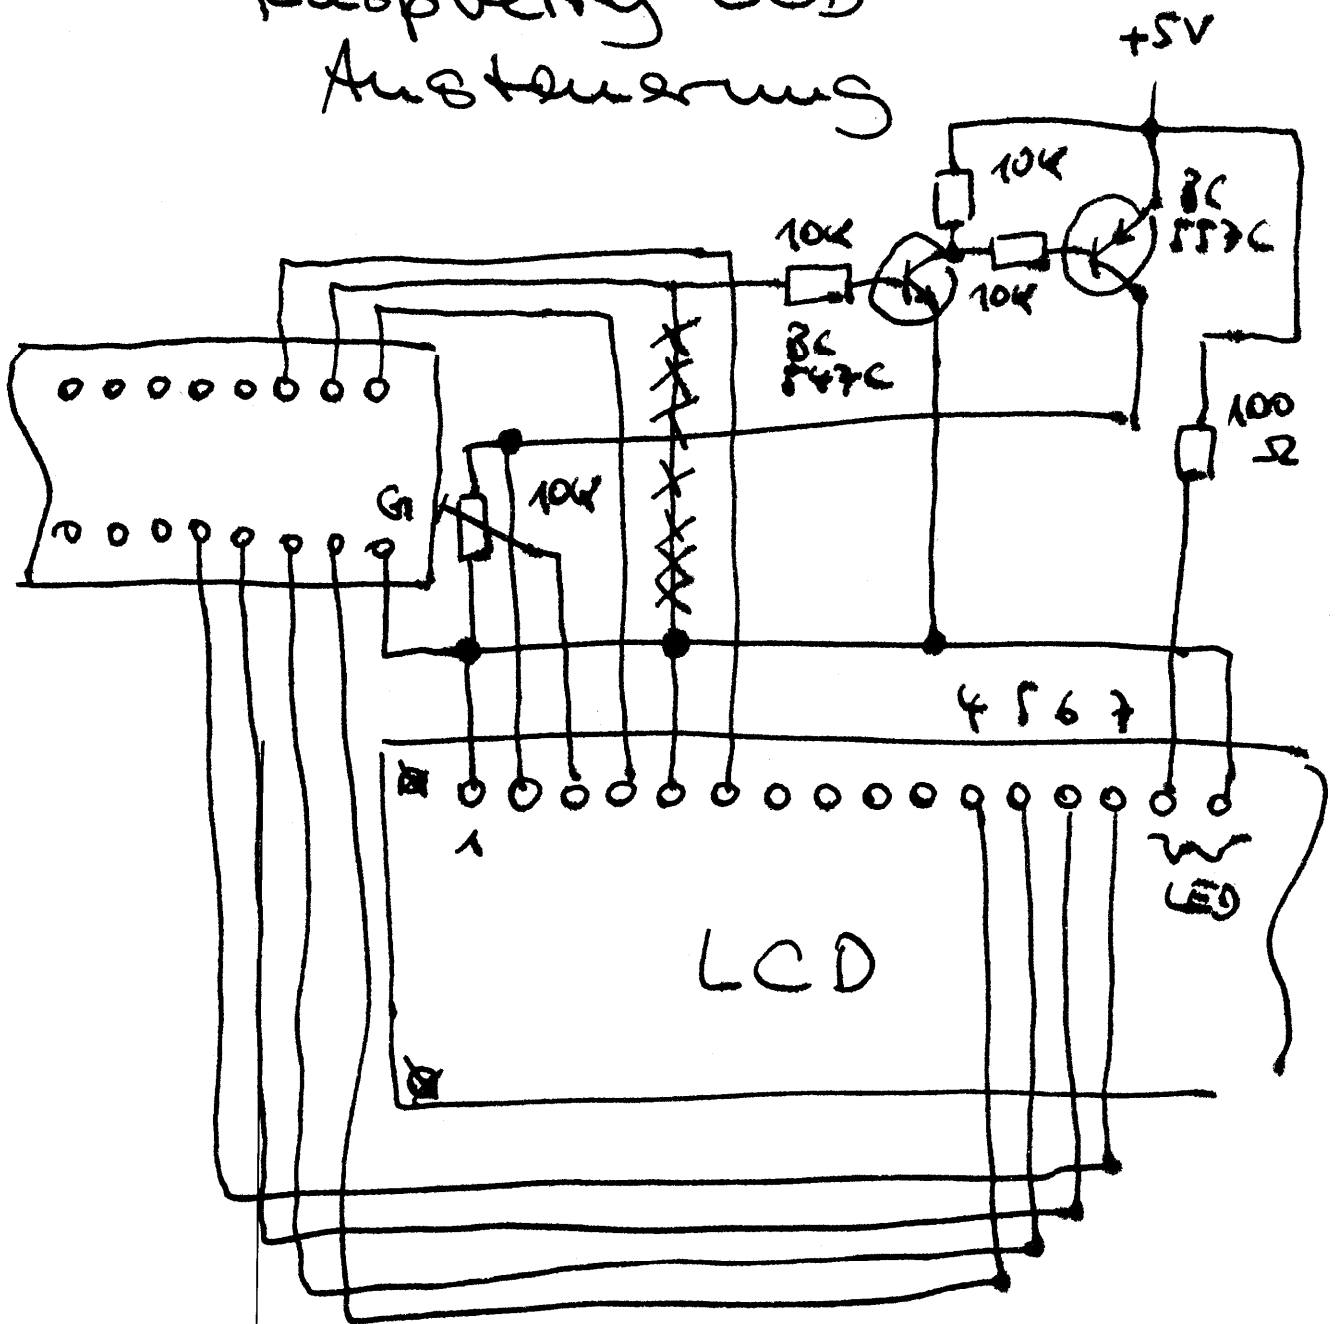 Raspberry LCD
Ansteuerung
+5V
10K
BC
557C
10K
10K
BC
547C
100
Ω
G
10K
4 5 6 7
1
LED
LCD